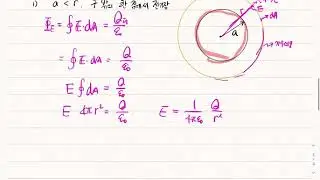 i) a < r, 구 밖의 한 점에서 전기장
Φ_E = ∮ E · dA = Q/ε₀
= ∮ E · dA = Q/ε₀
E ∮ dA = Q/ε₀
E 4πr² = Q/ε₀   E = 1/4πε₀ Q/r²
a
E
r